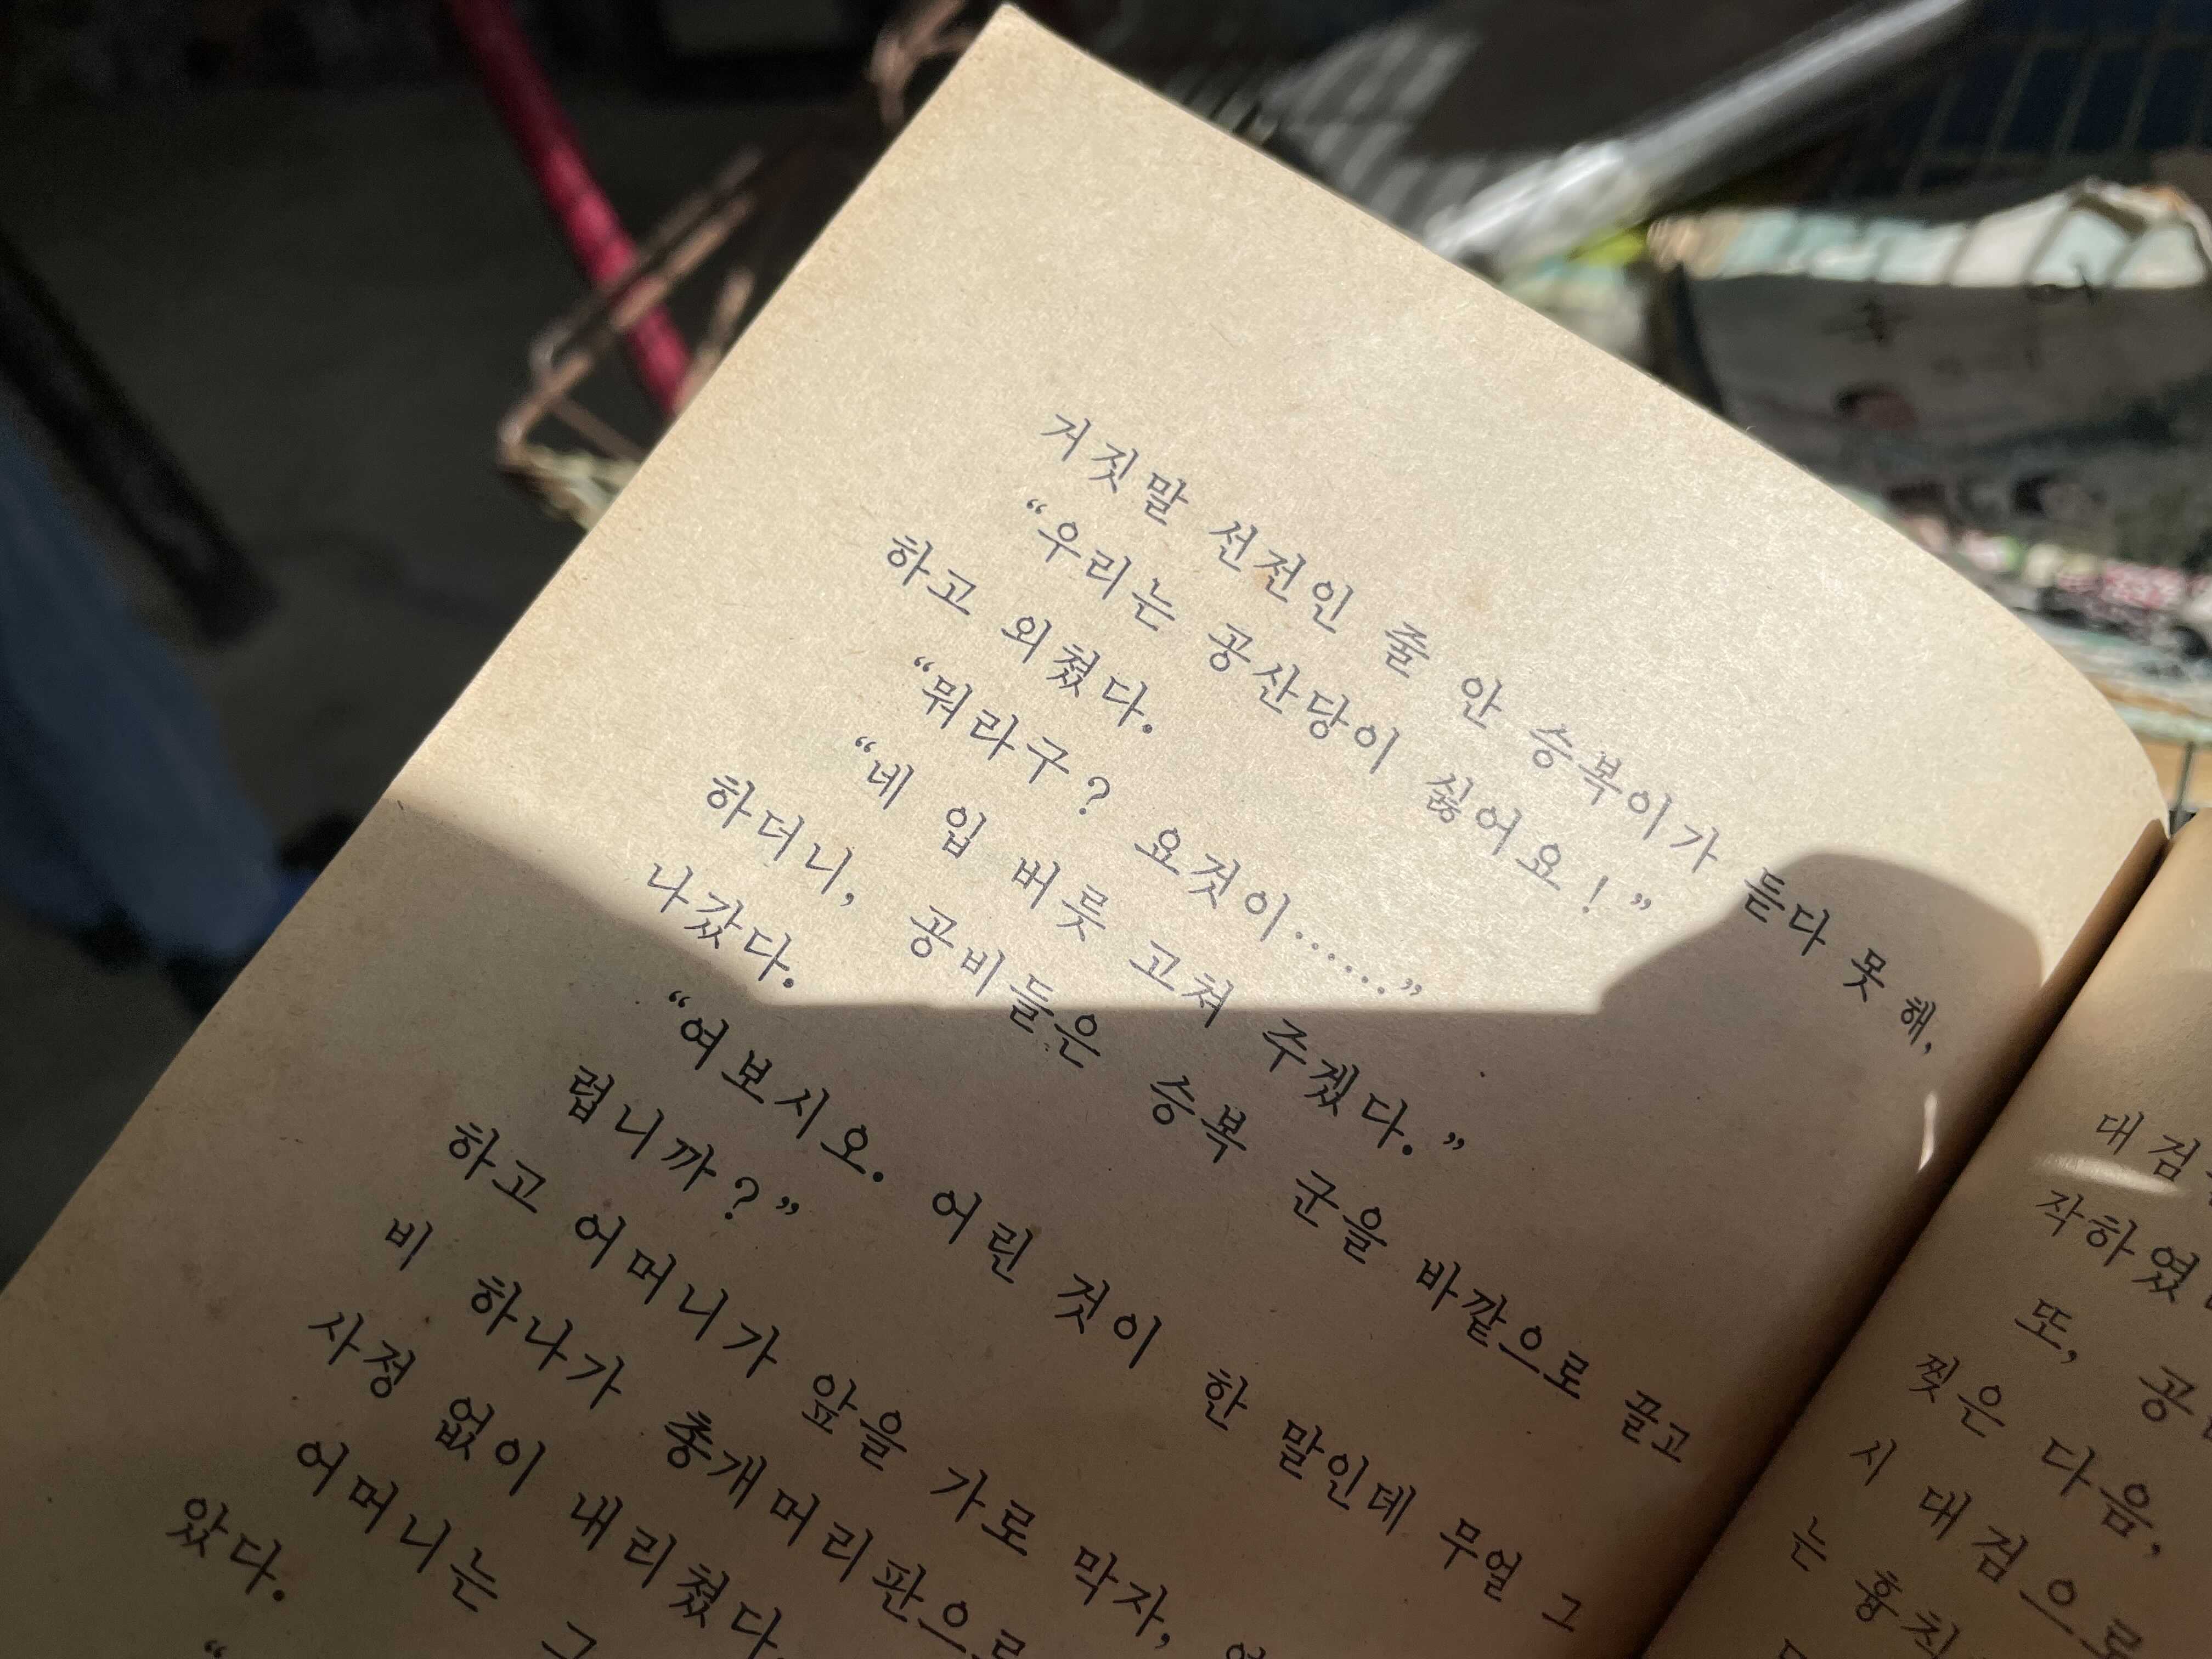 거짓말 선전인 줄 안 승복이가 듣다 못 해,
“우리는 공산당이 싫어요!”
하고 외쳤다.
“뭐라구? 요것이……”
“네 입 버릇 고쳐 주겠다.”
하더니, 공비들은 승복 군을 바깥으로 끌고
나갔다.
“여보시오. 어린 것이 한 말인데 무얼 그
럽니까?”
하고 어머니가 앞을 가로 막자,
비 하나가 총개머리판으로
사정 없이 내리쳤다.
어머니는 그
았다.
“
대검
작하였
또, 공
찢은 다음,
시 대검으로
는 흉칙